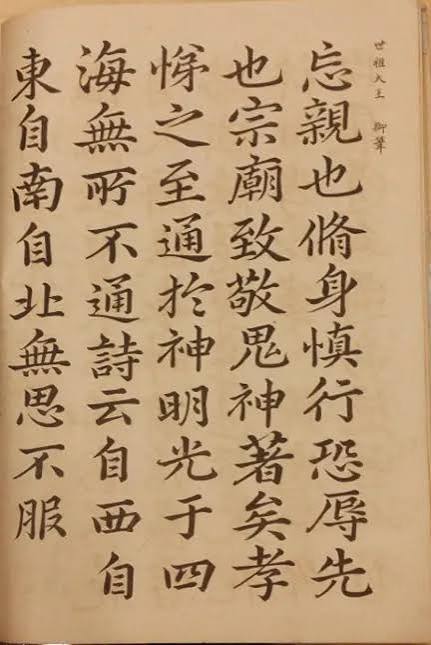 世祖大王 御筆
忘親也脩身慎行恐辱先
也宗廟致敬鬼神著矣孝
悌之至通於神明光于四
海無所不通詩云自西自
東自南自北無思不服